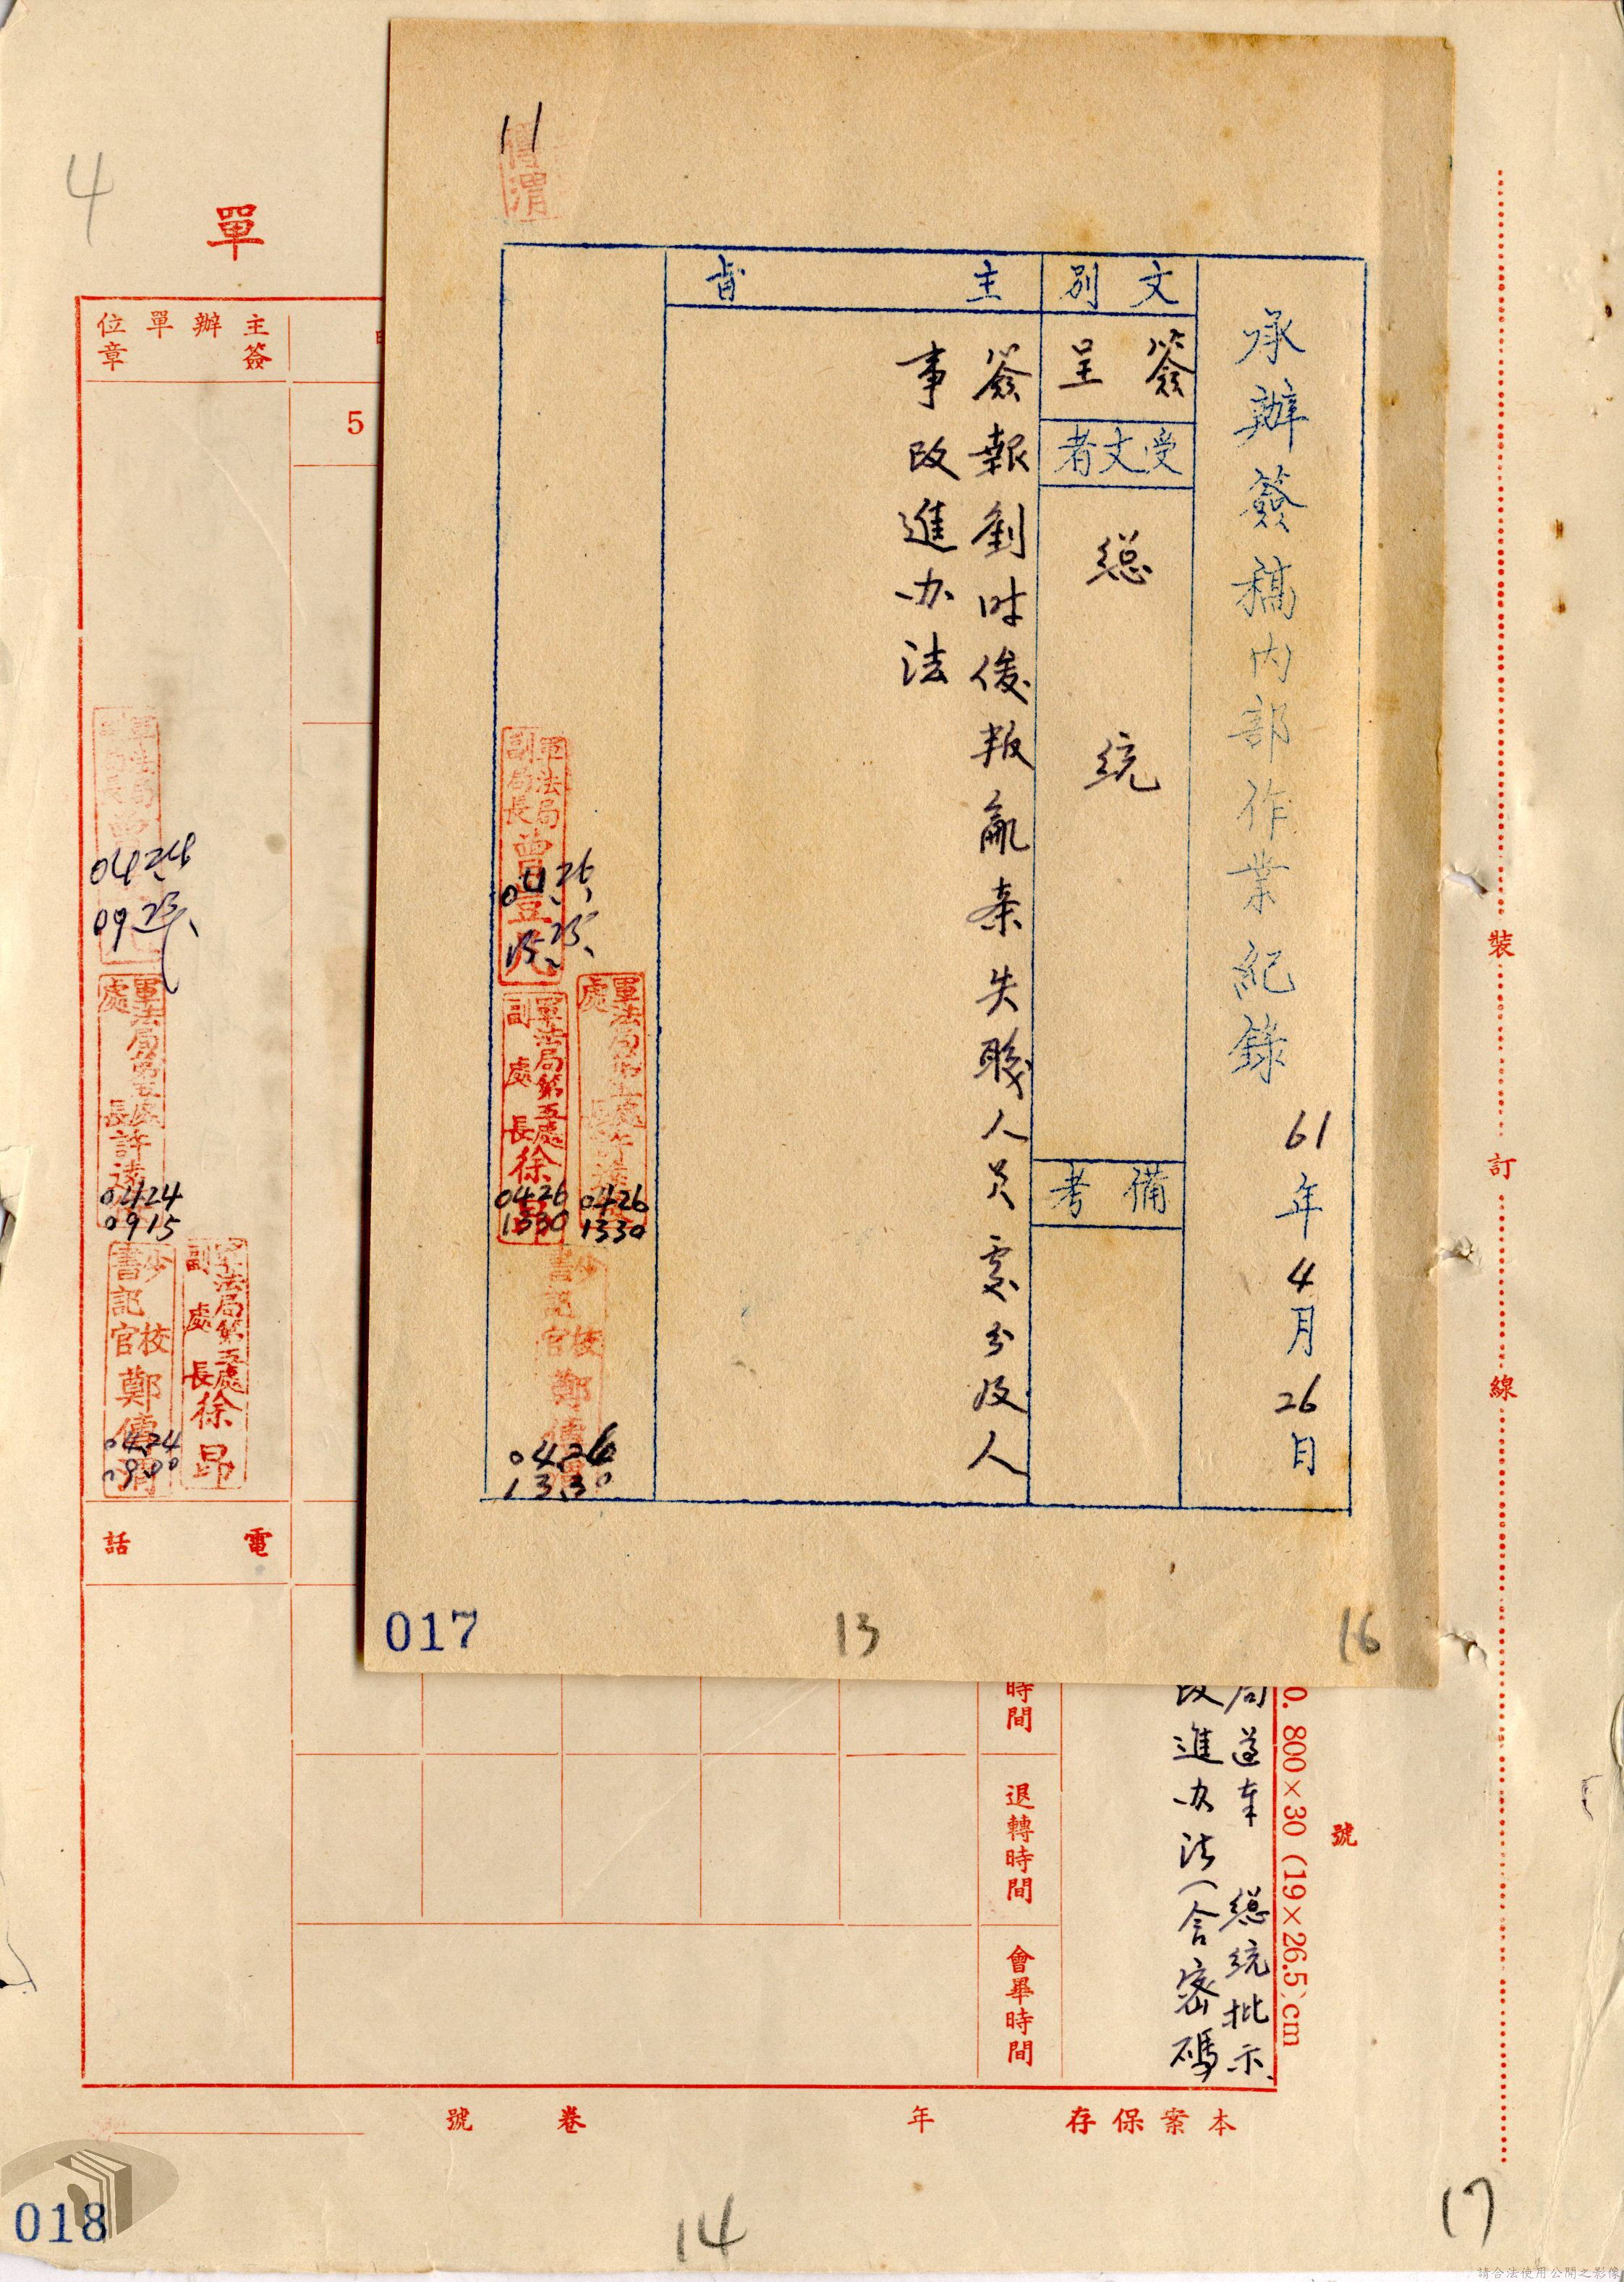 承辦簽稿內部作業紀錄 61年4月26日
文別
簽呈
受文者
總統
備考
主旨
簽報劉时俊叛亂案失職人員處分及人
事改進办法
軍法局
副局長
0426
1525
軍法局第五處
處長許
0426
1330
軍法局第五處
副處長徐
0426
1330
少校
書記官鄭
0426
1330
11
渭
017
13
16
裝
訂
線
號
0.800×30 (19×26.5) cm
局遵奉 總統批示
改進办法(含密碼
時間
退轉時間
會畢時間
5
單
4
主辦單位
簽章
軍法局
0424
軍法局第五處
處長許
0424
0915
軍法局第五處
副處長徐昂
少校
書記官鄭傳渭
0424
0900
電話
本案保存 年 卷 號
018
14
17
請合法使用公開之影像